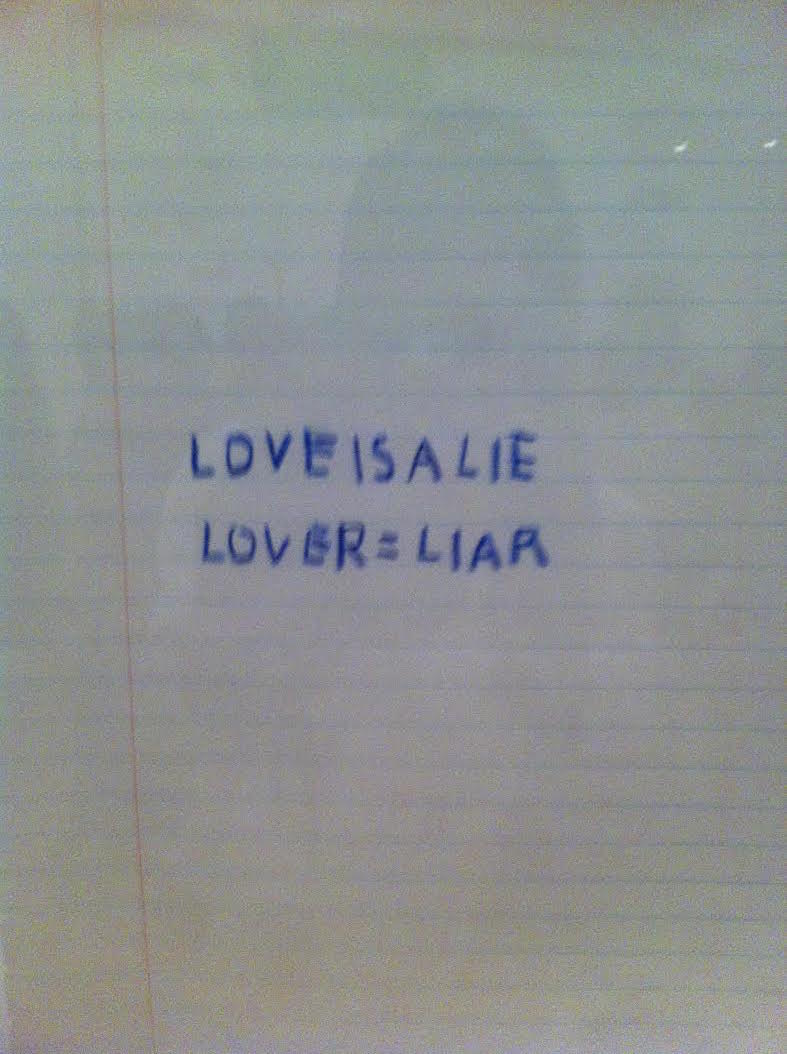 LOVE IS A LIE
LOVER = LIAR